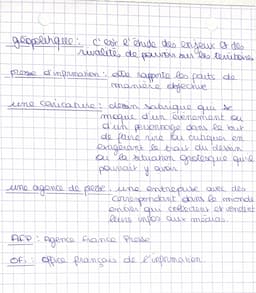 géopolitique : c'est l'étude des enjeux et des
rivalités de pouvoir sur les territoires
presse d'information : elle rapporte les faits de
manière objective
une caricature : dessin satirique qui se
moque d'un événement ou
d'un personnage dans le but
de faire rire ou critiquer en
exagérant le trait du dessin
ou la situation grotesque qu'il
pourrait y avoir
une agence de presse : une entreprise avec des
correspondant dans le monde
entier qui collectent et vendent
leurs infos aux médias.
AFP : Agence France Presse
OFI : Office français de l'information